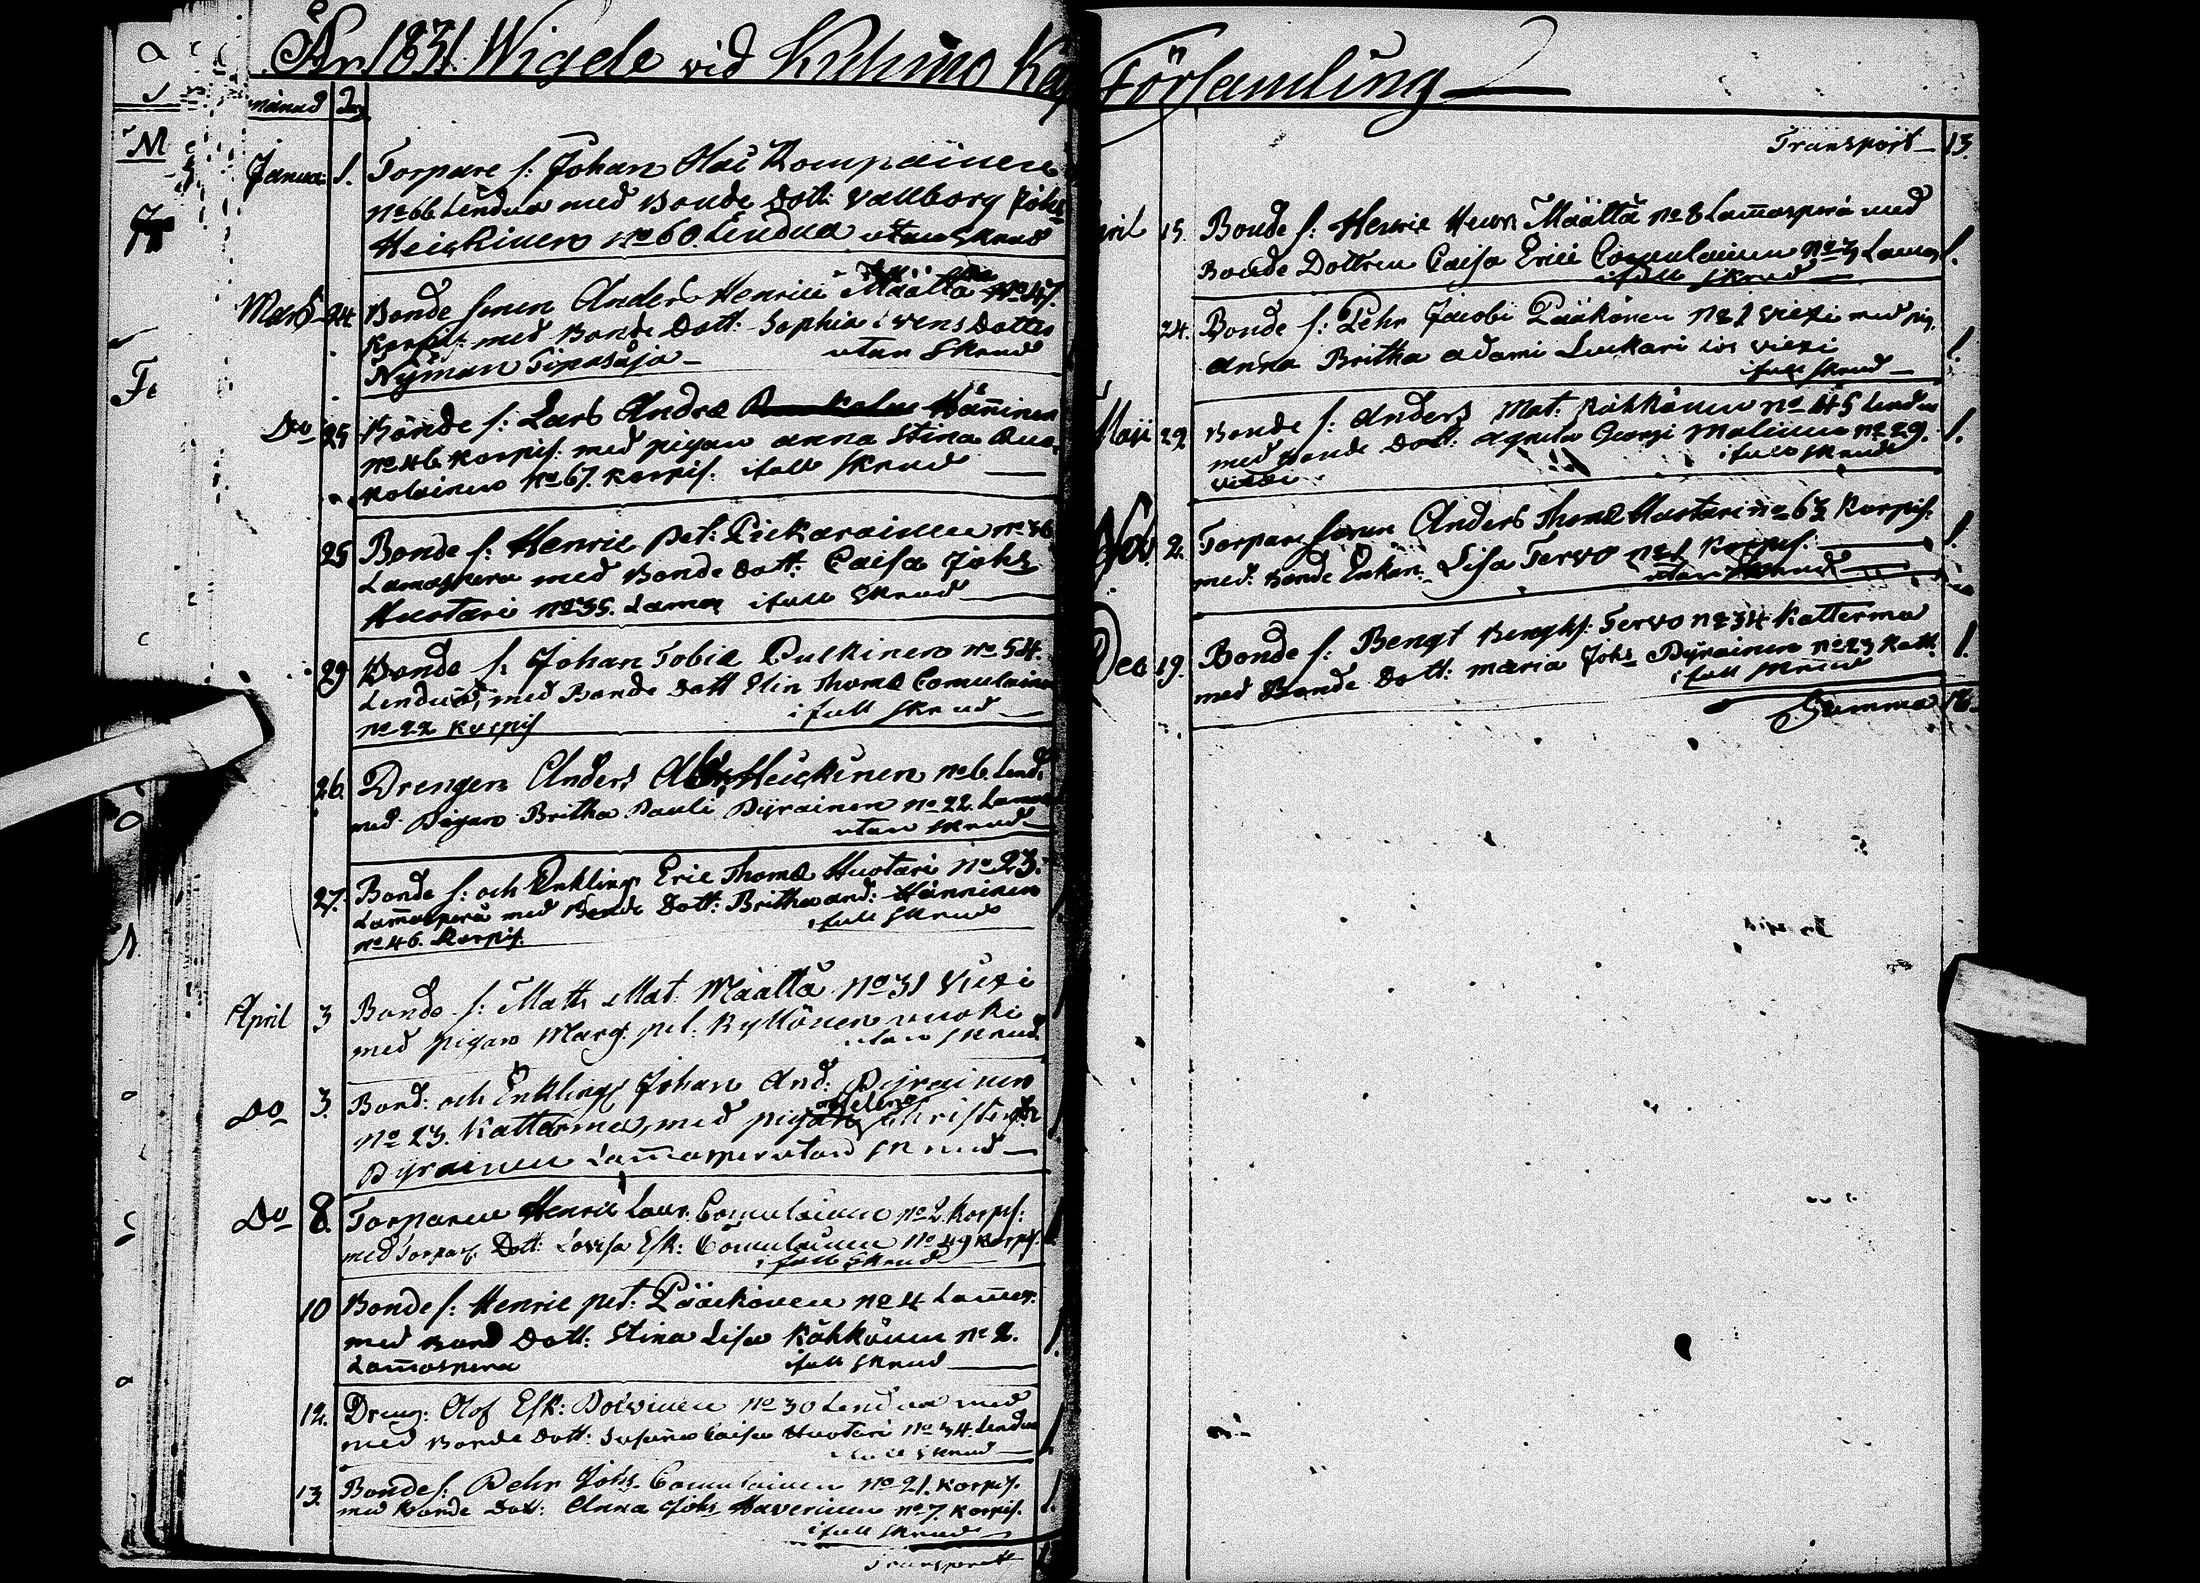 År 1831 Wigde vid Kuhmo Kap
månad Dag
Janua: 1. Torpare s: Johan Olai Komulainen
No 66 Lendua med Bonde Dott: Vallborg Joh:
Heickinen No 60. Lendua utan Skrud
Mars 24 Bonde sonen Anders Henric Määttä No 47.
Korpis: med Bonde Dott: Sophia Svens Dotter
Nyman Tipasåja - utan Skrud
Do 25 Bonde s: Lars Andræ Hänninen
No 46 Korpis: med pigan Anna Stina Ruo
kolainen No 67. Korpis. i full Skrud
25 Bonde s: Henric Pet: Pickarainen No 36
Lamasperä med Bonde Dott: Caisa Johs
Huotari No 35. Lamas i full Skrud
29 Bonde s: Johan Tobiæ Pulkinen No 54.
Lendua, med Bonde Dott Elin Thomæ Comulainen
No 22 Korpis i full Skrud
26. Drengen Anders Heickinen No 6. Lend:
med Pigan Britha Pauli Pyrainen No 22. Lamas
utan Skrud
27. Bonde s: och Enkling Eric Thomæ Huotari No 23.
Lam̄asperä med Bonde Dott: Britha And: Hänninen
No 46. Korpis. i full Skrud
April 3 Bonde s: Matts Mat: Määttä No 31 Viexi
med pigan Marg: pet: Kyllönen vuoki
utan Skrud
Do 3. Bond: och Enkling Johan And: Pyrainen
No 23. Katterma, med pigan Helena Christers
Pyrainen Lam̄asper utan Skrud
Do 8. Torparen Henric Laur. Comulainen No 2. Korpis:
med Torpar Dott: Lovisa Esk: Comulainen No 49 Korpis.
i full Skrud
10 Bonde s: Henric pet: Pääckönen No 4 Lam̄as:
med Bond Dott: Stina Lisa Kähkönen No 2. 1.
Lam̄aspera i full Skrud
12. Dreng: Olof Esk: Polvinen No 30 Lendua med
med Bonde Dott: Susanna Caisa Huotari No 34. Lendua 1.
i full Skrud
13. Bonde s: Pehr Johs Comulainen No 21. Korpis.
med Bonde Dott: Anna Johs Haverinen No 7. Korpis. 1.
i full Skrud
Transporte
Församling
Transport 13.
April 15. Bonde s: Henric Henr: Määttä No 8 Lam̄asperä med
Bonde Dottren Caisa Erici Comulainen No 3 Lamas 1.
i full Skrud
24. Bonde s: Pehr Jacobi Pääkönen No 1 Viexi med pig.
Anna Britha Adami Luckari Viexi 1.
i full Skrud
Maji 29. Bonde s: Anders Mat: Kähkönen No 45 Lendua
med Bonde Dott: Agneta Georgi Malinen No 29. 1.
Viexi i full Skrud
Nov 2. Torpare sonen Anders Thomæ Huotari No 63 Korpis.
med Bonde Enkan Lisa Tervo No 1 Korpis. 1.
utan Skrud
Dec 19. Bonde s: Bengt Bengts: Tervo No 34 Katterma
med Bonde Dott: Maria Johs Pyrainen No 23 Katt. 1.
i full Skrud
Summa 18.